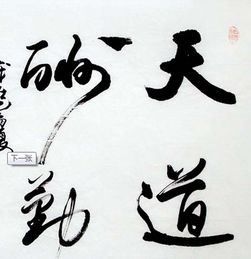 天道
酬勤
下一张